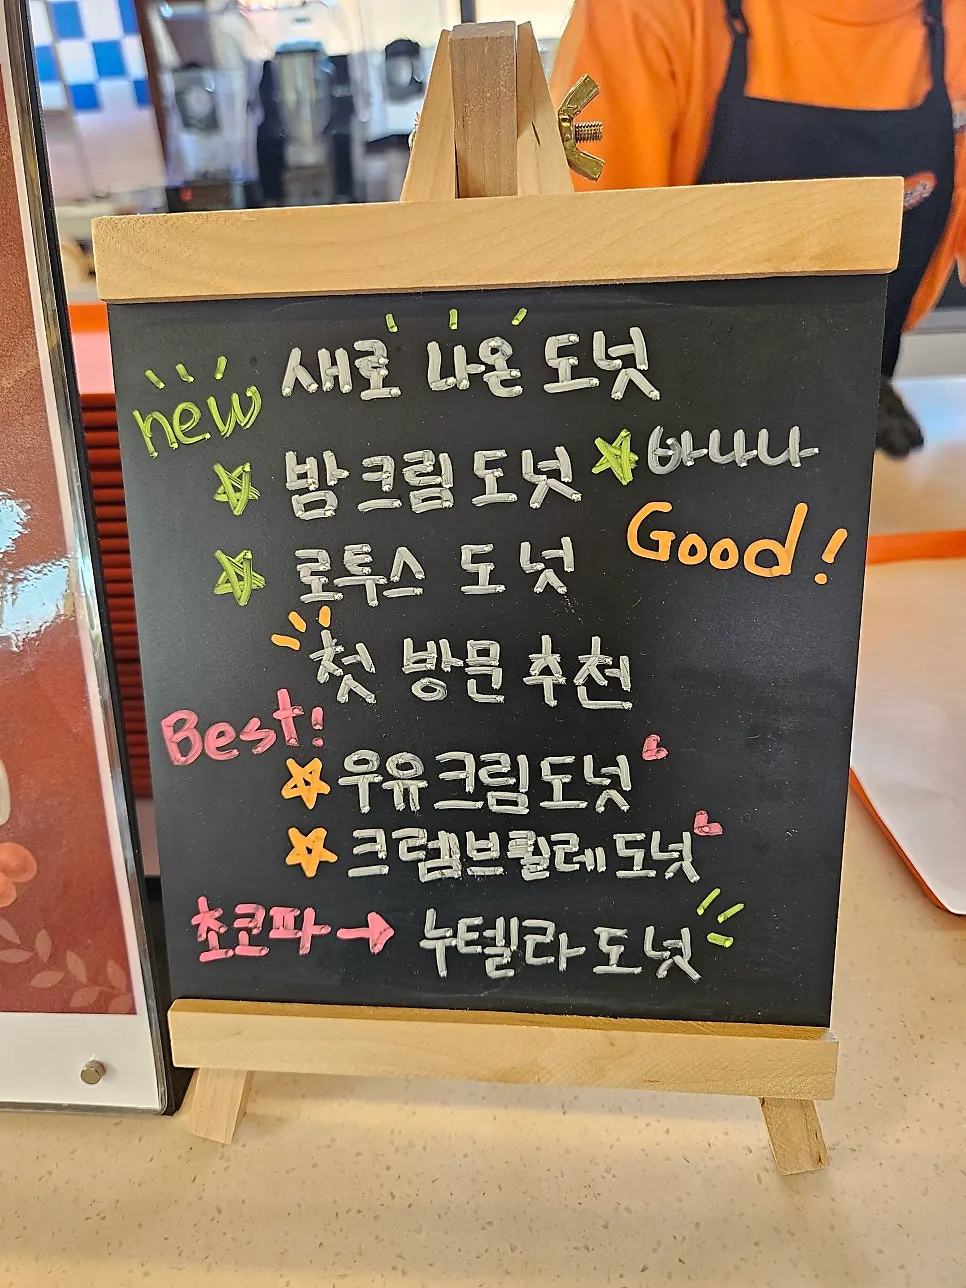 new 새로 나온 도넛
밤크림 도넛 바나나
Good!
로투스 도넛
첫 방문 추천
Best!
우유크림도넛
크렘브륄레도넛
초코파→ 누텔라도넛